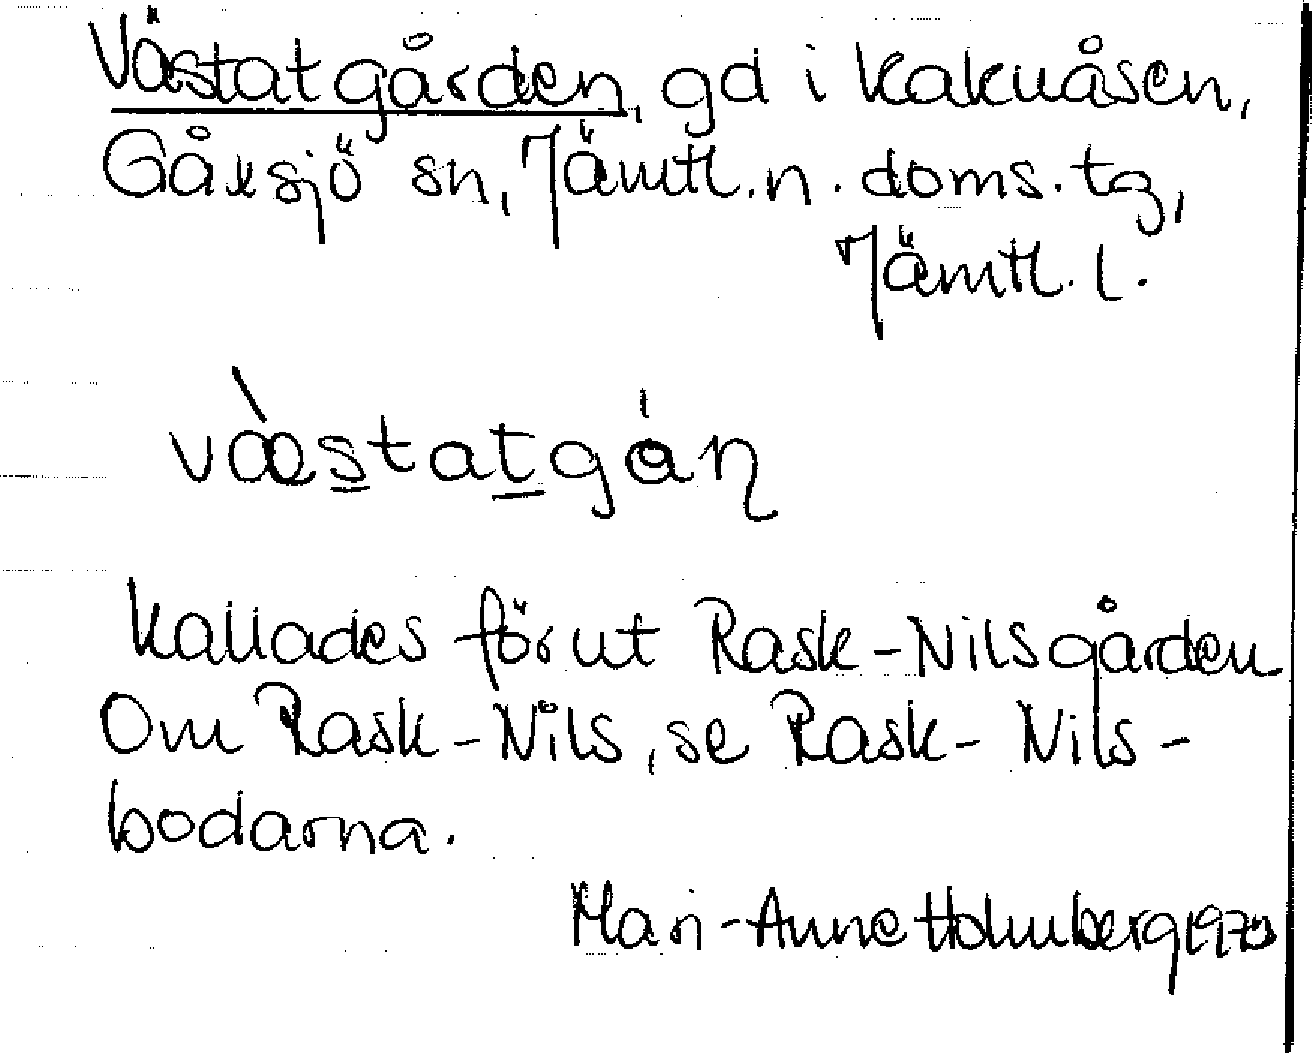 Västatgården, gd i Kakuåsen,
Gåxsjö sn, Jämtl. n. doms. tg,
Jämtl. l.
væ̀statgɑ́ɳ
Kallades förut Rask-Nilsgården
Om Rask-Nils, se Rask-Nils-
bodarna.
Mari-Anne Holmberg 1970